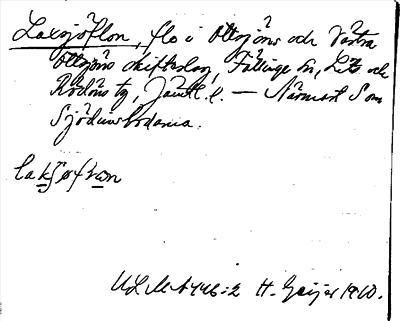 Laxsjöflon, flo i Ottsjöns och Västra
Ottsjöns skifteslag, Föllinge sn, Lits och
Rödöns tg, Jämtl. l. — Närmast Som
Sjödinsbodarna.
laksøflon
ULMA 446:2 H. Geijer 1910.